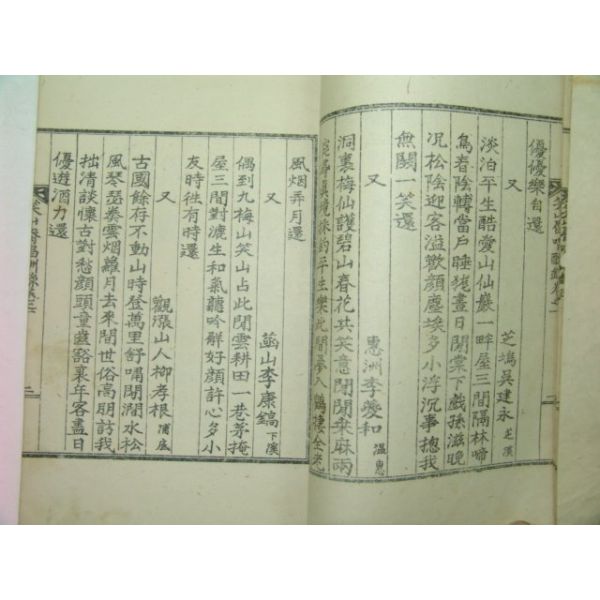 優優樂自還
又
芝塢吳建永 芝溪
淡泊平生酷愛山仙巖一畔屋三間隔林啼
鳥春陰轉當戶睡狵晝日閒棠下戲孫滋晚
況松陰迎客溢歡顏塵埃多小浮沉事摠我
無關一笑還
又
惠洲李愛和 溫惠
洞裏梅仙護碧山春花共笑意閒閒桑麻兩
平生樂此間夢入
風烟弄月還
又
菡山李康鎬 下溪
偶到九梅山笑山占此閒雲耕田一巷茅掩
屋三間對漉生和氣龍吟鮮好顏許心多小
友時徃有時還
又
觀漲山人柳孝根 浦底
古國餘存不動山時登萬里舒嘯閒澗水松
風琴瑟奏雲烟蘿月去來間世俗高朋訪我
拙清談懷古對愁顏頭童齒豁衰年客盡日
優遊酒力還